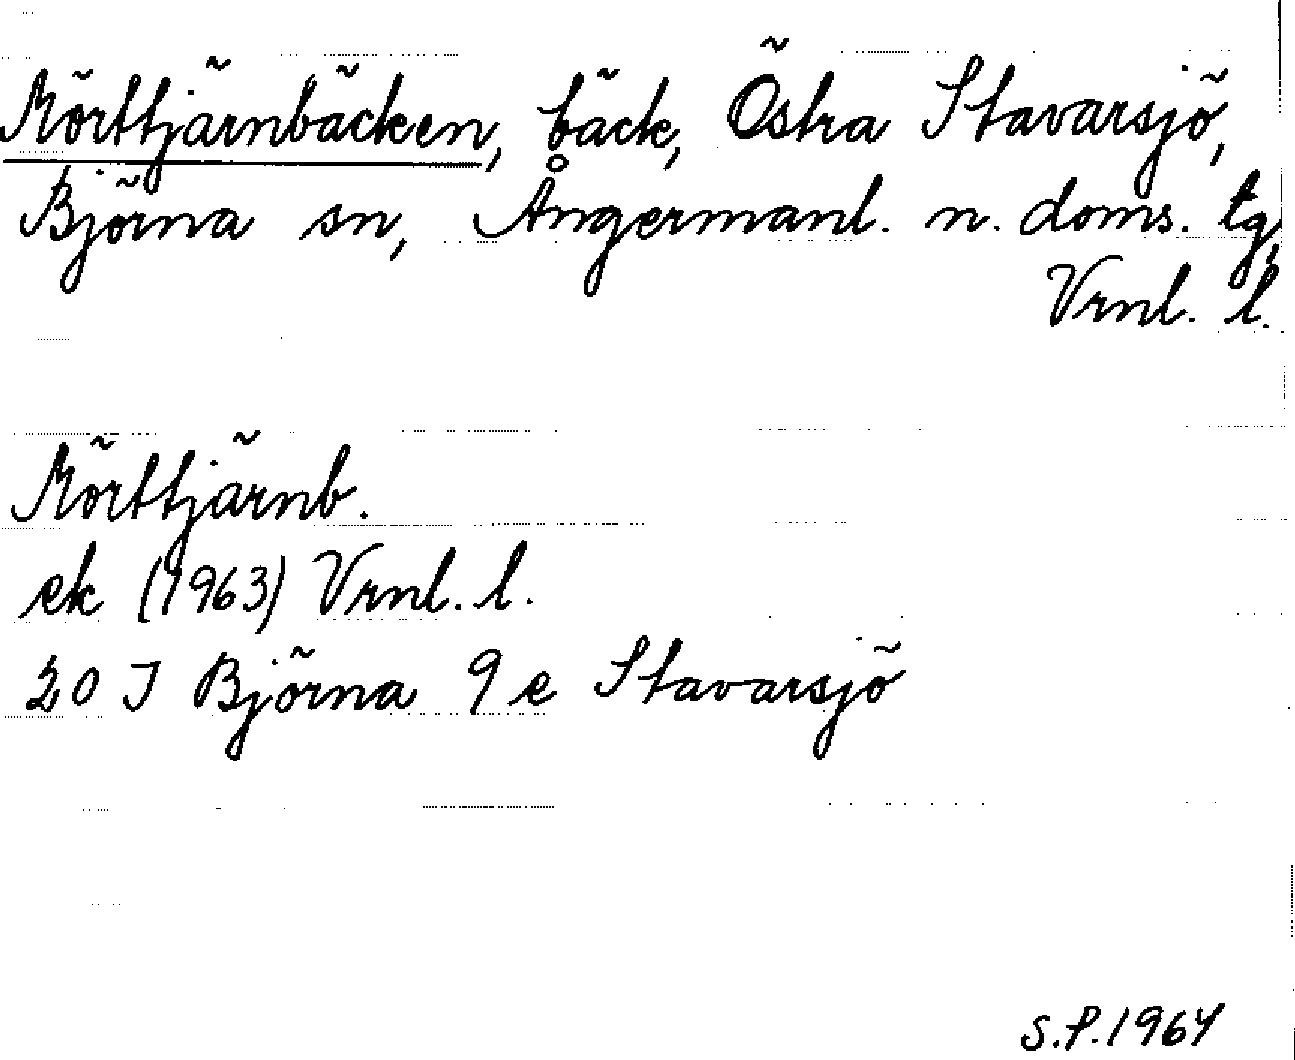 Mörttjärnbäcken, bäck, Östra Stavarsjö,
Björna sn, Ångermanl. n. doms. tg,
Vrnl. l.
Mörttjärnb.
ek (1963) Vrnl. l.
20 J Björna 9 e Stavarsjö
S.P. 1964